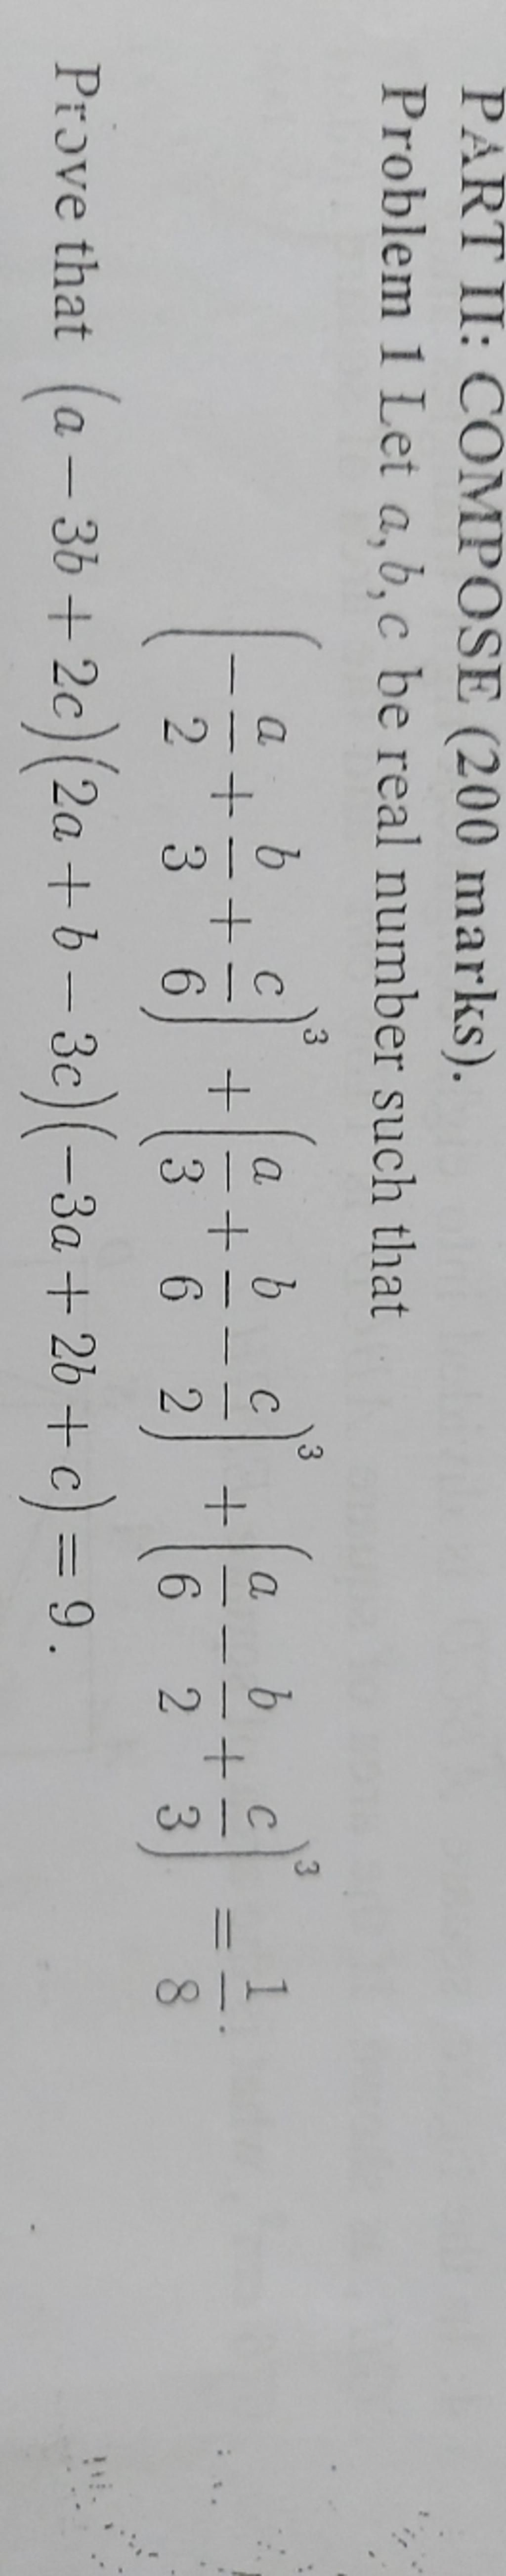 PART II: COMPOSE (200 marks).
Problem 1 Let a, b, c be real number such that
(−a/2 + b/3 + c/6)³ + (a/3 + b/6 − c/2)³ + (a/6 − b/2 + c/3)³ = 1/8.
Prove that (a − 3b + 2c)(2a + b − 3c)(−3a + 2b + c) = 9.